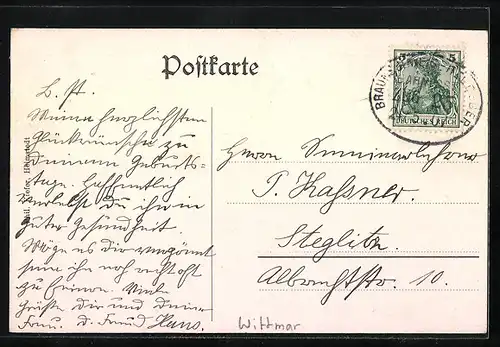 Postkarte
5
DEUTSCHES REICH
L. P.
Meine herzlichsten
Glückwünsche zu
Deinem Geburts-
tage. Hoffentlich
verlebst du ihn in
guter Gesundheit.
Möge es dir vergönnt
sein ihn noch recht oft
zu feiern. Viele
Grüße dir und deiner
Frau. d. Freund Hans.
Herrn Seminarlehrer
P. Kassner.
Steglitz.
Albrechtstr. 10.
Wittmar